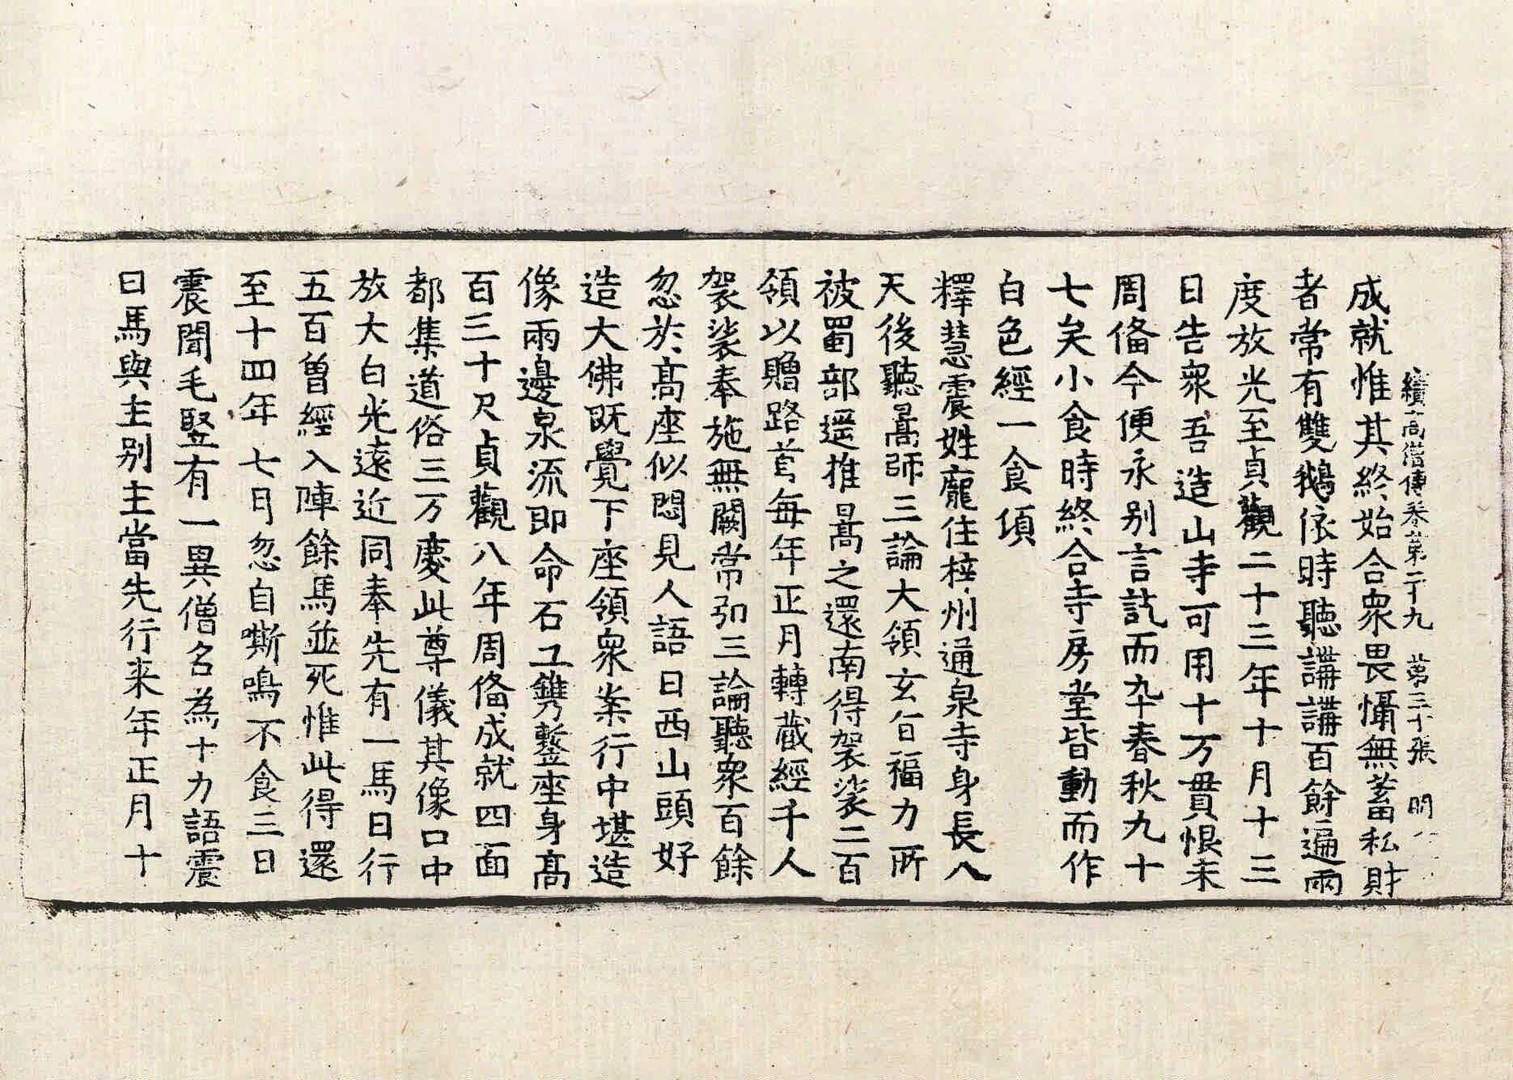 續高僧傳卷第二十九 第三十張 明
成就惟其終始合衆畏懾無蓄私財
者常有雙鵝依時聽講講百餘遍兩
度放光至貞觀二十三年十月十三
日告衆吾造山寺可用十万貫恨未
周俻今便永别言訖而卒春秋九十
七矣小食時終合寺房堂皆動而作
白色經一食頃
釋慧震姓龐住梓州通泉寺身長八
天後聽暠師三論大領玄旨福力所
被蜀部遝推暠之還南得袈裟二百
領以贈路首每年正月轉藏經千人
袈裟奉施無闕常弘三論聽衆百餘
忽於髙座似悶見人語曰西山頭好
造大佛既覺下座領衆案行中堪造
像兩邊泉流即命石工鐫鑿座身髙
百三十尺貞觀八年周俻成就四面
都集道俗三万慶此尊儀其像口中
放大白光遠近同奉先有一馬日行
五百曽經入陣餘馬並死惟此得還
至十四年七日忽自嘶鳴不食三日
震聞毛竪有一異僧名為十力語震
曰馬與主别主當先行来年正月十